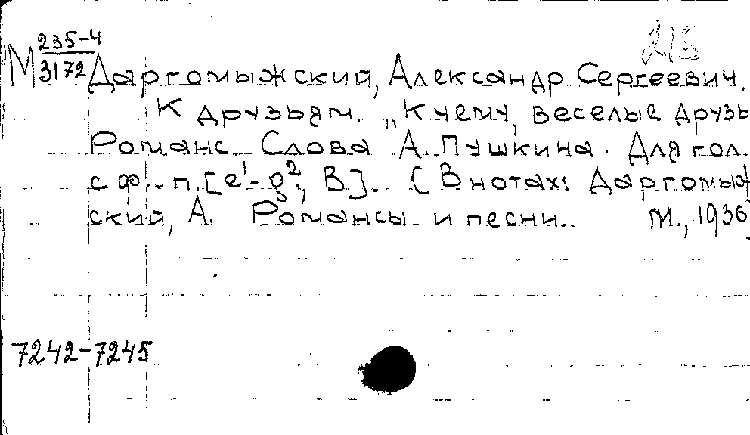 М 235-4
3172 Даргомыжский, Александр Сергеевич.
К друзьям. „К чему, веселые друзь
Романс. Слова А. Пушкина. Для гол.
с ф.-п. [e¹-g², B]. [В нотах: Даргомы
ский, А. Романсы и песни. М., 1936
7242-7245